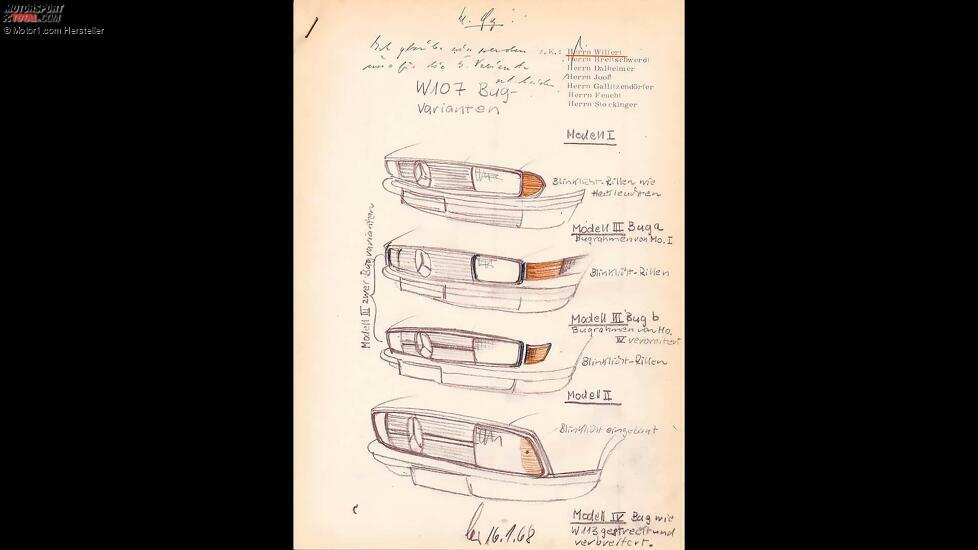 MOTORSPORT
TOTAL.COM
© Motor1.com Hersteller
z.K.: Herrn Wilfert
Herrn Breitschwerdt
Herrn Dalheimer
Herrn Jooß
Herrn Gallitzendörfer
Herrn Feucht
Herrn Stockinger
Ich glaube wir werden
uns für die
W107 Bug-
varianten
Modell I
Blinklicht-Rillen wie
Heckleuchten
Modell III Bug a
Bugrahmen von Mo. I
Blinklicht-Rillen
Modell III zwei Bugvarianten
Modell III Bug b
Bugrahmen von Mo.
IV verbreitert
Blinklicht-Rillen
Modell II
Blinklicht eingebaut
Modell IV Bug wie
W113 gestreckt und
verbreitert.
16.1.68